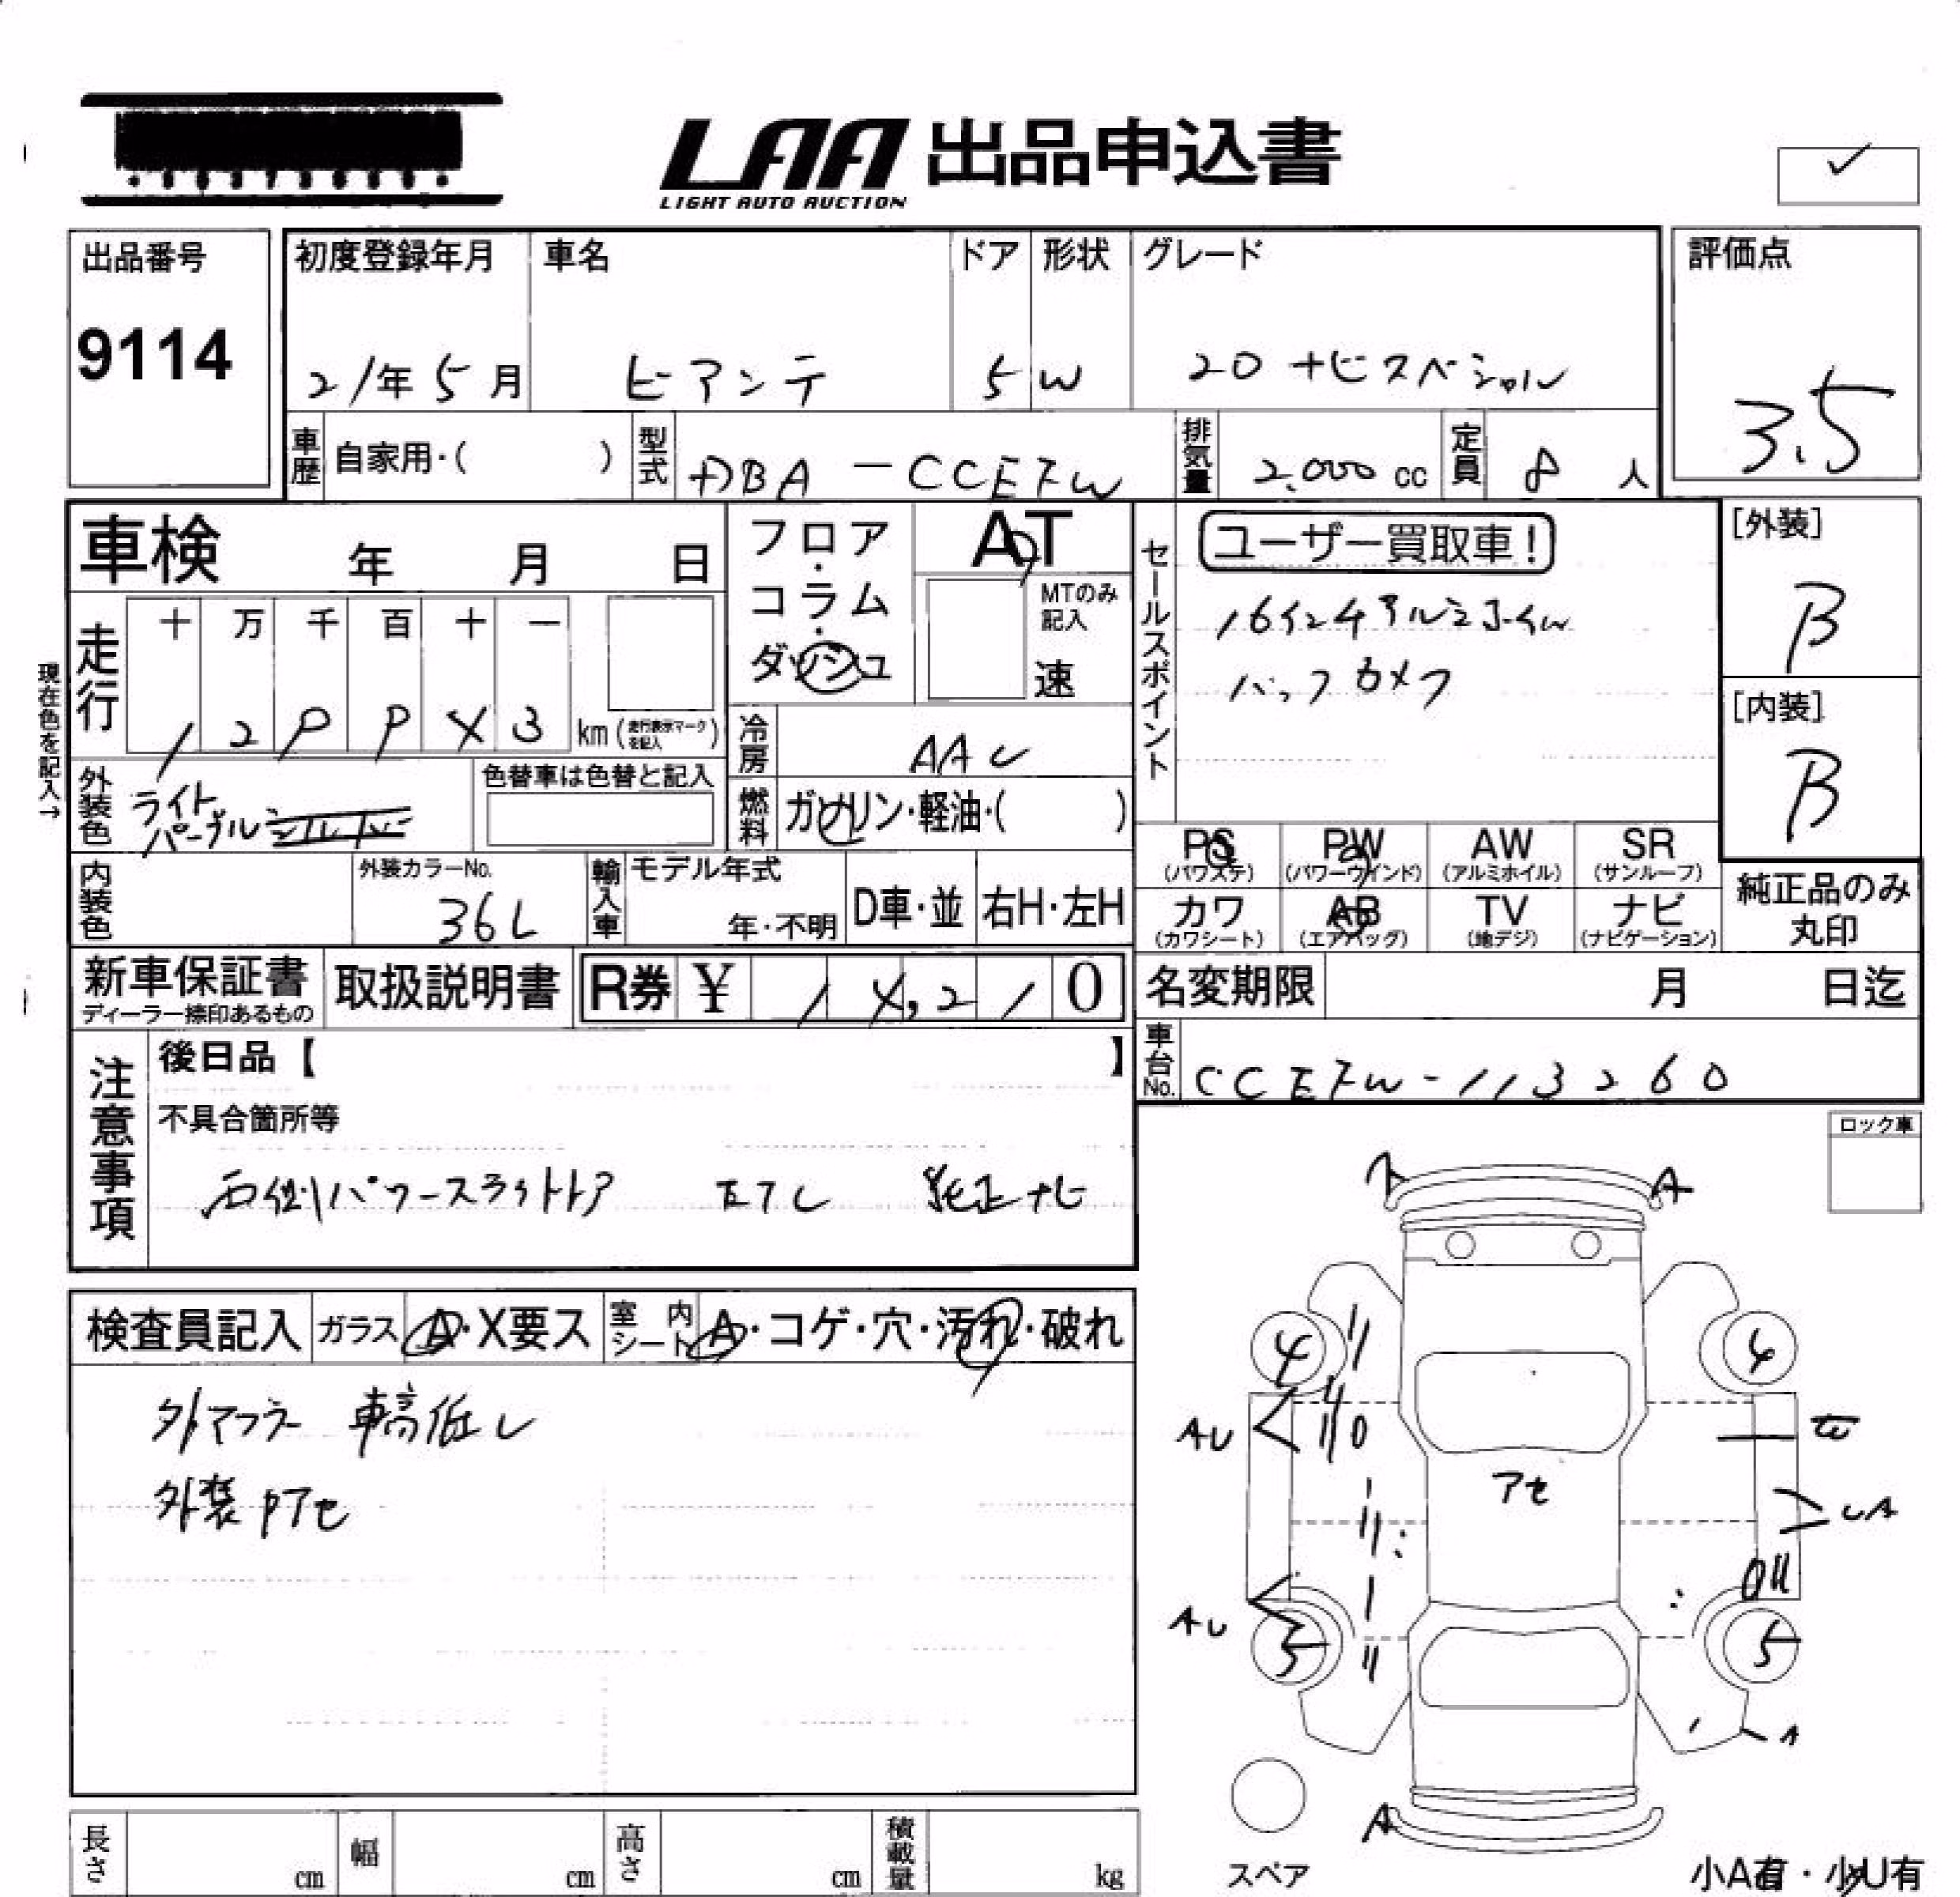 LAA 出品申込書
LIGHT AUTO AUCTION
出品番号
9114
初度登録年月 車名 ドア 形状 グレード
21年5月 ビアンテ 5 W 20 ナビスペシャル
評価点
3.5
車歴 自家用・( ) 型式 DBA-CCEFW 排気量 2,000 cc 定員 8 人
車検 年 月 日
フロア・コラム・ダッシュ
AT
MTのみ記入
速
セールスポイント
ユーザー買取車!
16インチアルミホイル
バックカメラ
[外装]
B
[内装]
B
現在色を記入→
走行 十 万 千 百 十 一
km(走行表示マークを記入)
冷房 AAC
外装色 ライトパープル
色替車は色替と記入
燃料 ガソリン・軽油・( )
PS (パワステ) PW (パワーウインド) AW (アルミホイル) SR (サンルーフ)
カワ (カワシート) AB (エアバッグ) TV (地デジ) ナビ (ナビゲーション)
純正品のみ丸印
内装色 外装カラーNo. 36L 輸入車 モデル年式 年・不明 D車・並 右H・左H
新車保証書 ディーラー捺印あるもの 取扱説明書 R券 ¥ 1 0
名変期限 月 日迄
車台No. CCEFW-113260
注意事項
後日品【 】
不具合箇所等
右側パワースライドドア ETC 純正ナビ
ロック車
検査員記入 ガラス A・X要ス 室内シート A・コゲ・穴・汚れ・破れ
外マフラー 車高低し
外装Pアセ
A A
4 4
AU
アセ
UA
AU
5 5
A
A
スペア
小A有・小U有
長さ cm 幅 cm 高さ cm 積載量 kg